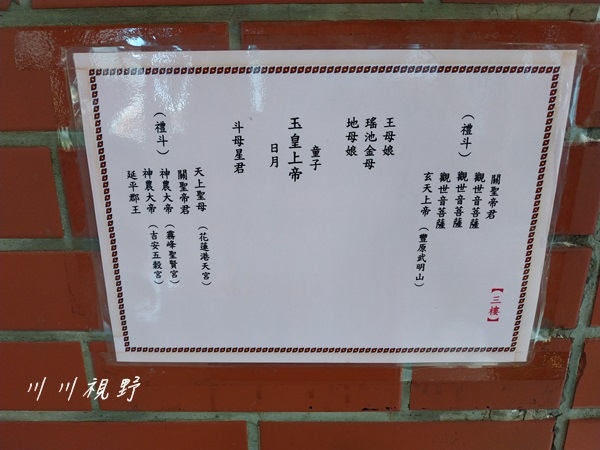 【三樓】
關聖帝君
觀世音菩薩
觀世音菩薩
觀世音菩薩
玄天上帝（豐原武明山）
（禮斗）
王母娘
瑤池金母
地母娘
童子
玉皇上帝
日月
斗母星君
天上聖母（花蓮港天宮）
關聖帝君
神農大帝（霧峰聖賢宮）
神農大帝（吉安五穀宮）
延平郡王
（禮斗）
川川視野